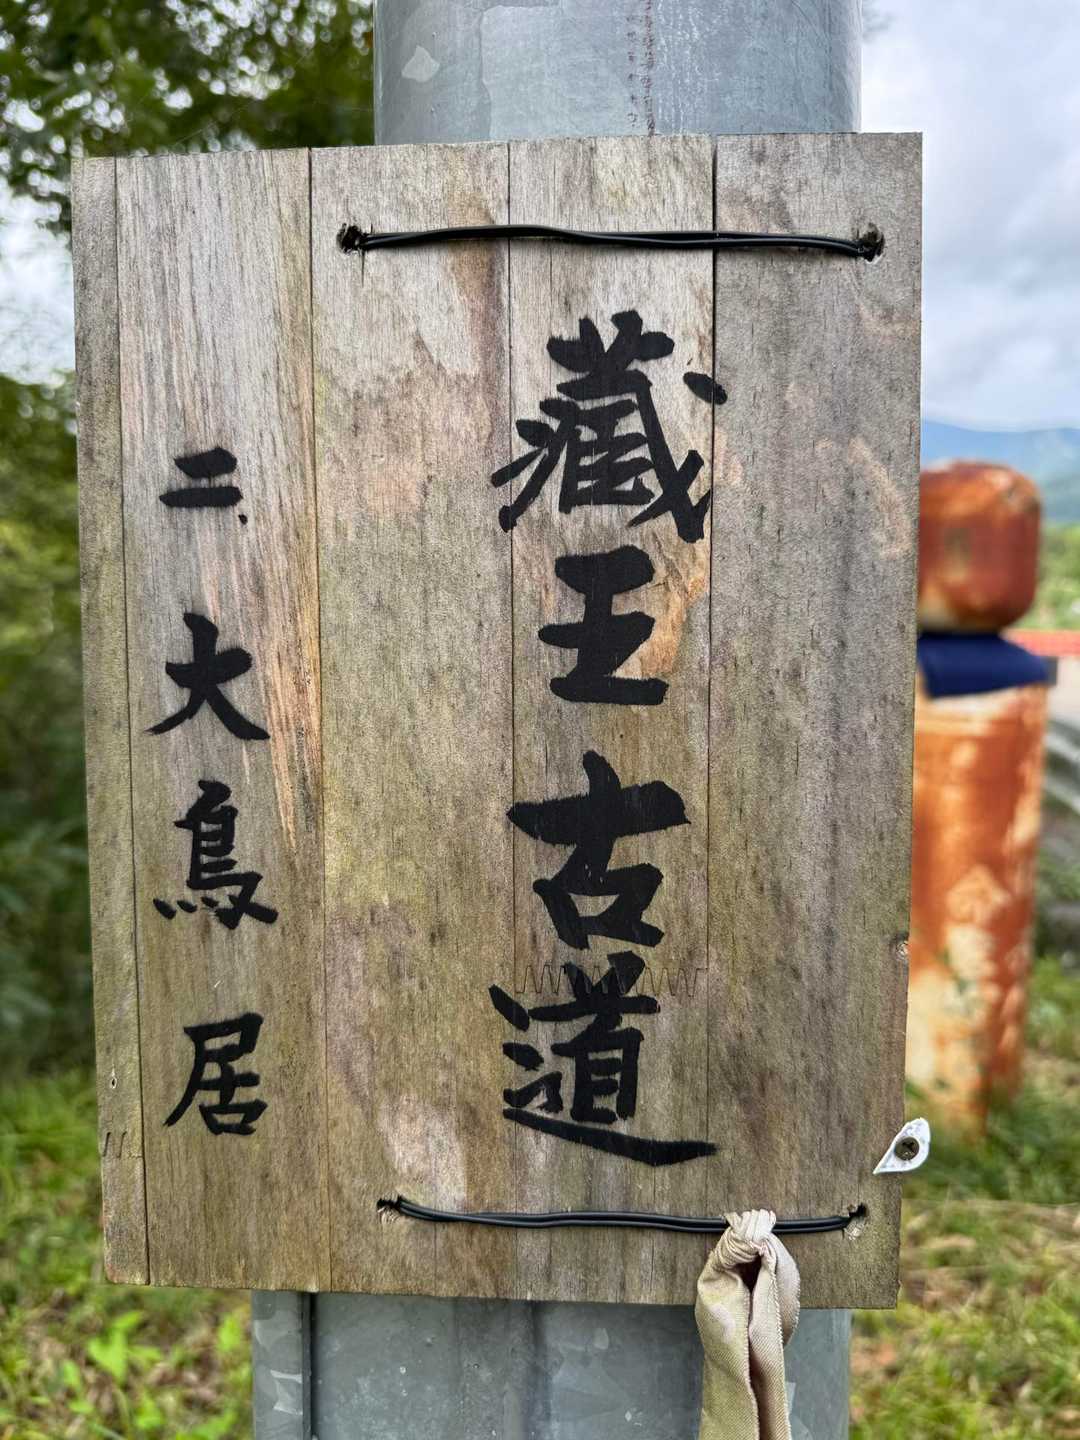 藏王古道
二、大鳥居